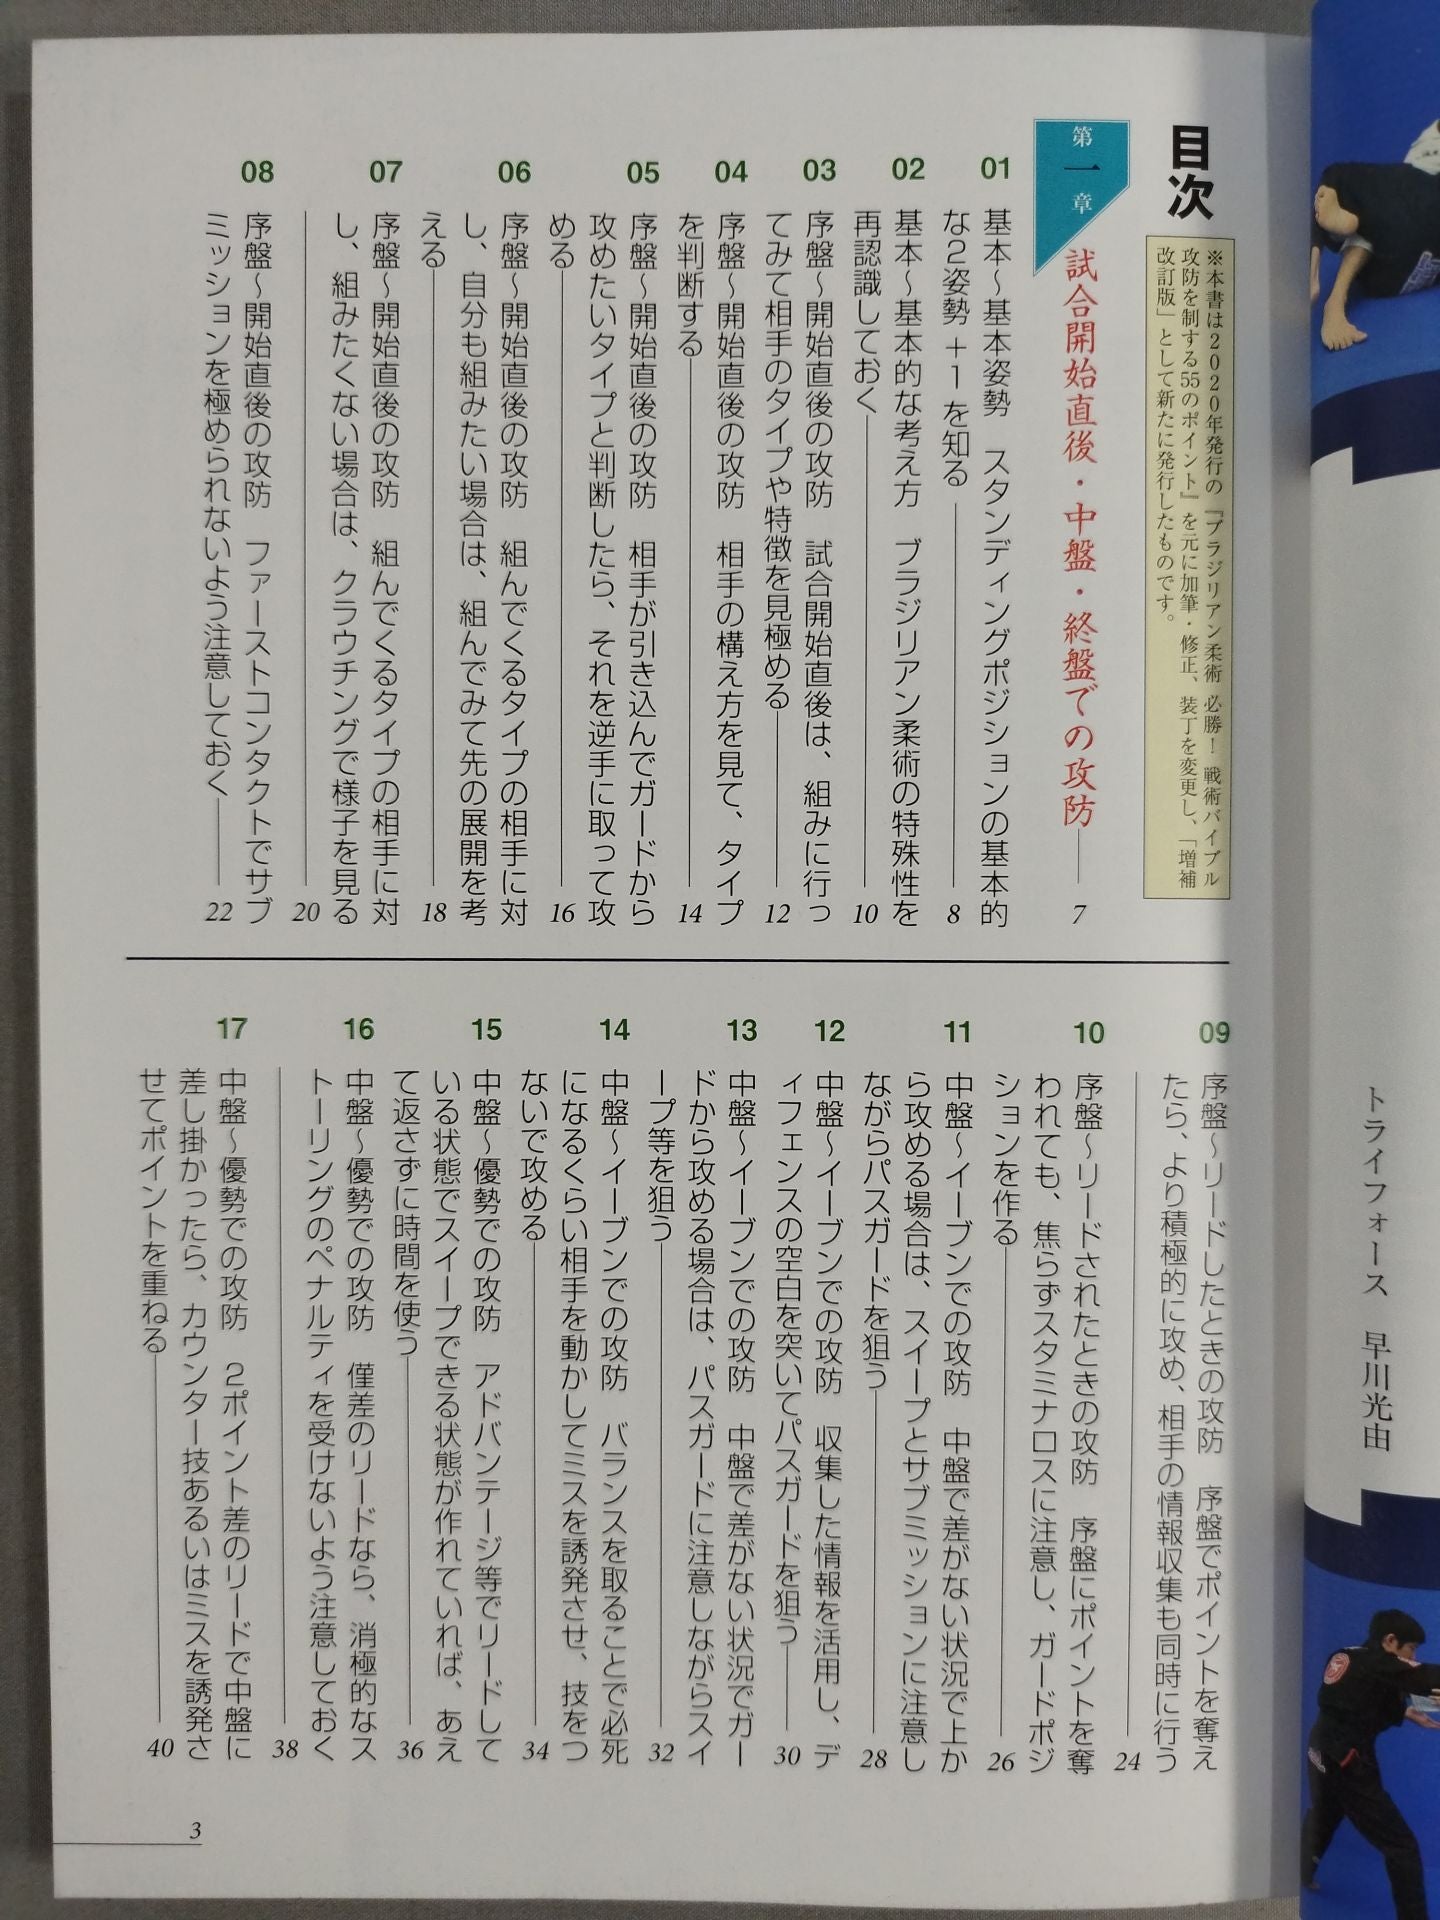 トライフォース　早川光由
目次
※本書は2020年発行の『ブラジリアン柔術 必勝！ 戦術バイブル
攻防を制する55のポイント』を元に加筆・修正、装丁を変更し、「増補
改訂版」として新たに発行したものです。
第一章
試合開始直後・中盤・終盤での攻防 7
01
基本～基本姿勢　スタンディングポジションの基本的
な2姿勢＋1を知る 8
02
基本～基本的な考え方　ブラジリアン柔術の特殊性を
再認識しておく 10
03
序盤～開始直後の攻防　試合開始直後は、組みに行っ
てみて相手のタイプや特徴を見極める 12
04
序盤～開始直後の攻防　相手の構え方を見て、タイプ
を判断する 14
05
序盤～開始直後の攻防　相手が引き込んでガードから
攻めたいタイプと判断したら、それを逆手に取って攻
める 16
06
序盤～開始直後の攻防　組んでくるタイプの相手に対
し、自分も組みたい場合は、組んでみて先の展開を考
える 18
07
序盤～開始直後の攻防　組んでくるタイプの相手に対
し、組みたくない場合は、クラウチングで様子を見る
20
08
序盤～開始直後の攻防　ファーストコンタクトでサブ
ミッションを極められないよう注意しておく 22
09
序盤～リードしたときの攻防　序盤でポイントを奪え
たら、より積極的に攻め、相手の情報収集も同時に行う
24
10
序盤～リードされたときの攻防　序盤にポイントを奪
われても、焦らずスタミナロスに注意し、ガードポジ
ションを作る 26
11
中盤～イーブンでの攻防　中盤で差がない状況で上か
ら攻める場合は、スイープとサブミッションに注意し
ながらパスガードを狙う 28
12
中盤～イーブンでの攻防　収集した情報を活用し、デ
ィフェンスの空白を突いてパスガードを狙う 30
13
中盤～イーブンでの攻防　中盤で差がない状況でガー
ドから攻める場合は、パスガードに注意しながらスイ
ープ等を狙う 32
14
中盤～イーブンでの攻防　バランスを取ることで必死
になるくらい相手を動かしてミスを誘発させ、技をつ
ないで攻める 34
15
中盤～優勢での攻防　アドバンテージ等でリードして
いる状態でスイープできる状態が作れていれば、あえ
て返さずに時間を使う 36
16
中盤～優勢での攻防　僅差のリードなら、消極的なス
トーリングのペナルティを受けないよう注意しておく
38
17
中盤～優勢での攻防　2ポイント差のリードで中盤に
差し掛かったら、カウンター技あるいはミスを誘発さ
せてポイントを重ねる 40
3